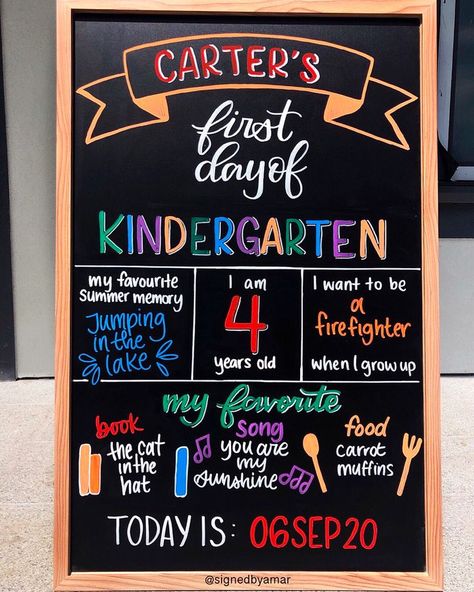 CARTER'S
first
day of
KINDERGARTEN
my favourite
Summer memory
Jumping
in the
lake
I am
4
years old
I want to be
a
firefighter
when I grow up
my favorite
book
the cat
in the
hat
song
you are
my
sunshine
food
carrot
muffins
TODAY IS: 06SEP20
@signedbyamar